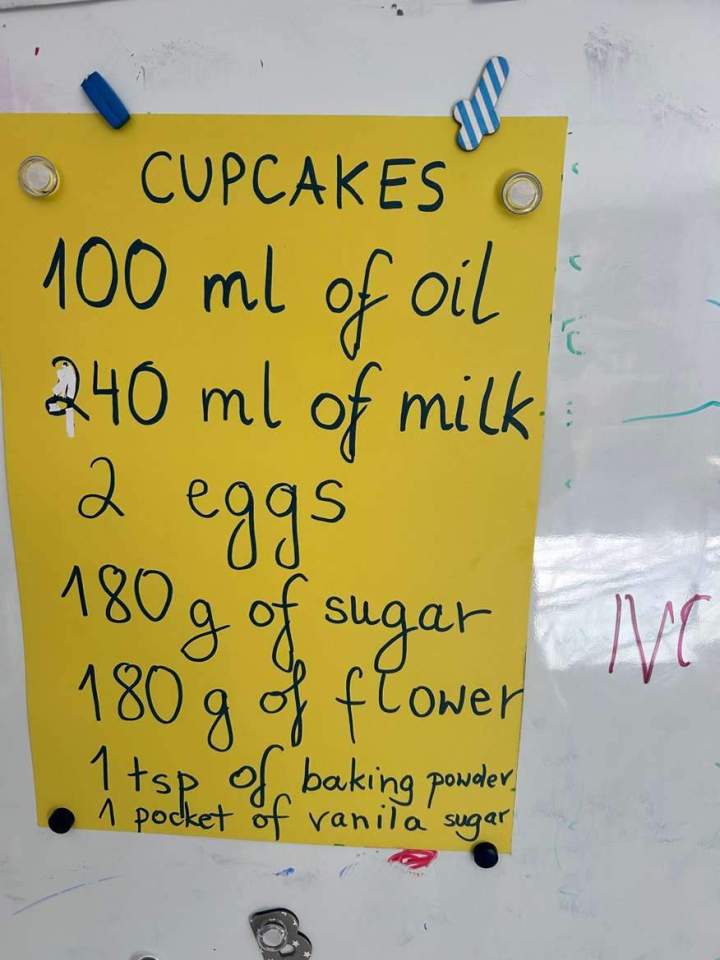 CUPCAKES
100 ml of oil
240 ml of milk
2 eggs
180 g of sugar
180 g of flower
1 tsp of baking powder
1 pocket of vanila sugar